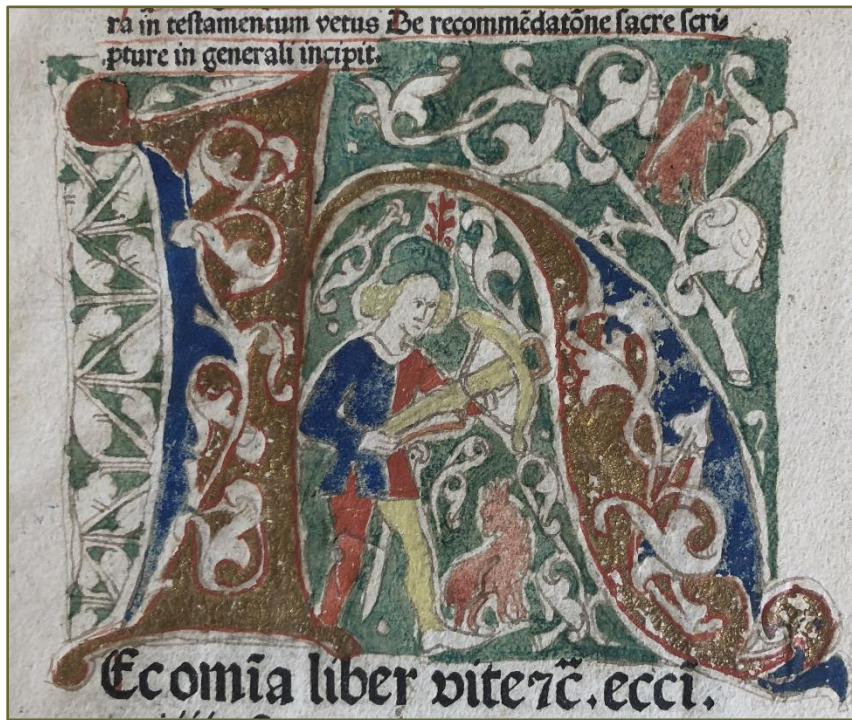 ra in testamentum vetus De recommēdatōne sacre scri-
pture in generali incipit.
H
Ec om̄ia liber vite ⁊c̄. ecci.